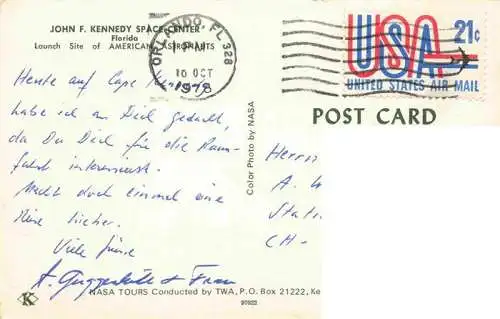 JOHN F. KENNEDY SPACE CENTER
Florida
Launch Site of AMERICAN ASTRONAUTS
ORLANDO FL 328
PM
10 OCT
1978
USA 21c
UNITED STATES AIR MAIL
POST CARD
Heute auf Cape
habe ich an Dich gedacht,
da Du Dich für die Raum-
fahrt interessierst.
Macht doch einmal eine
Reise hieher.
Viele Grüsse
A. Guggenbühl + Frau
Herrn
A. W
Stati
CH-
Color Photo by NASA
K
NASA TOURS Conducted by TWA, P.O. Box 21222, Ke